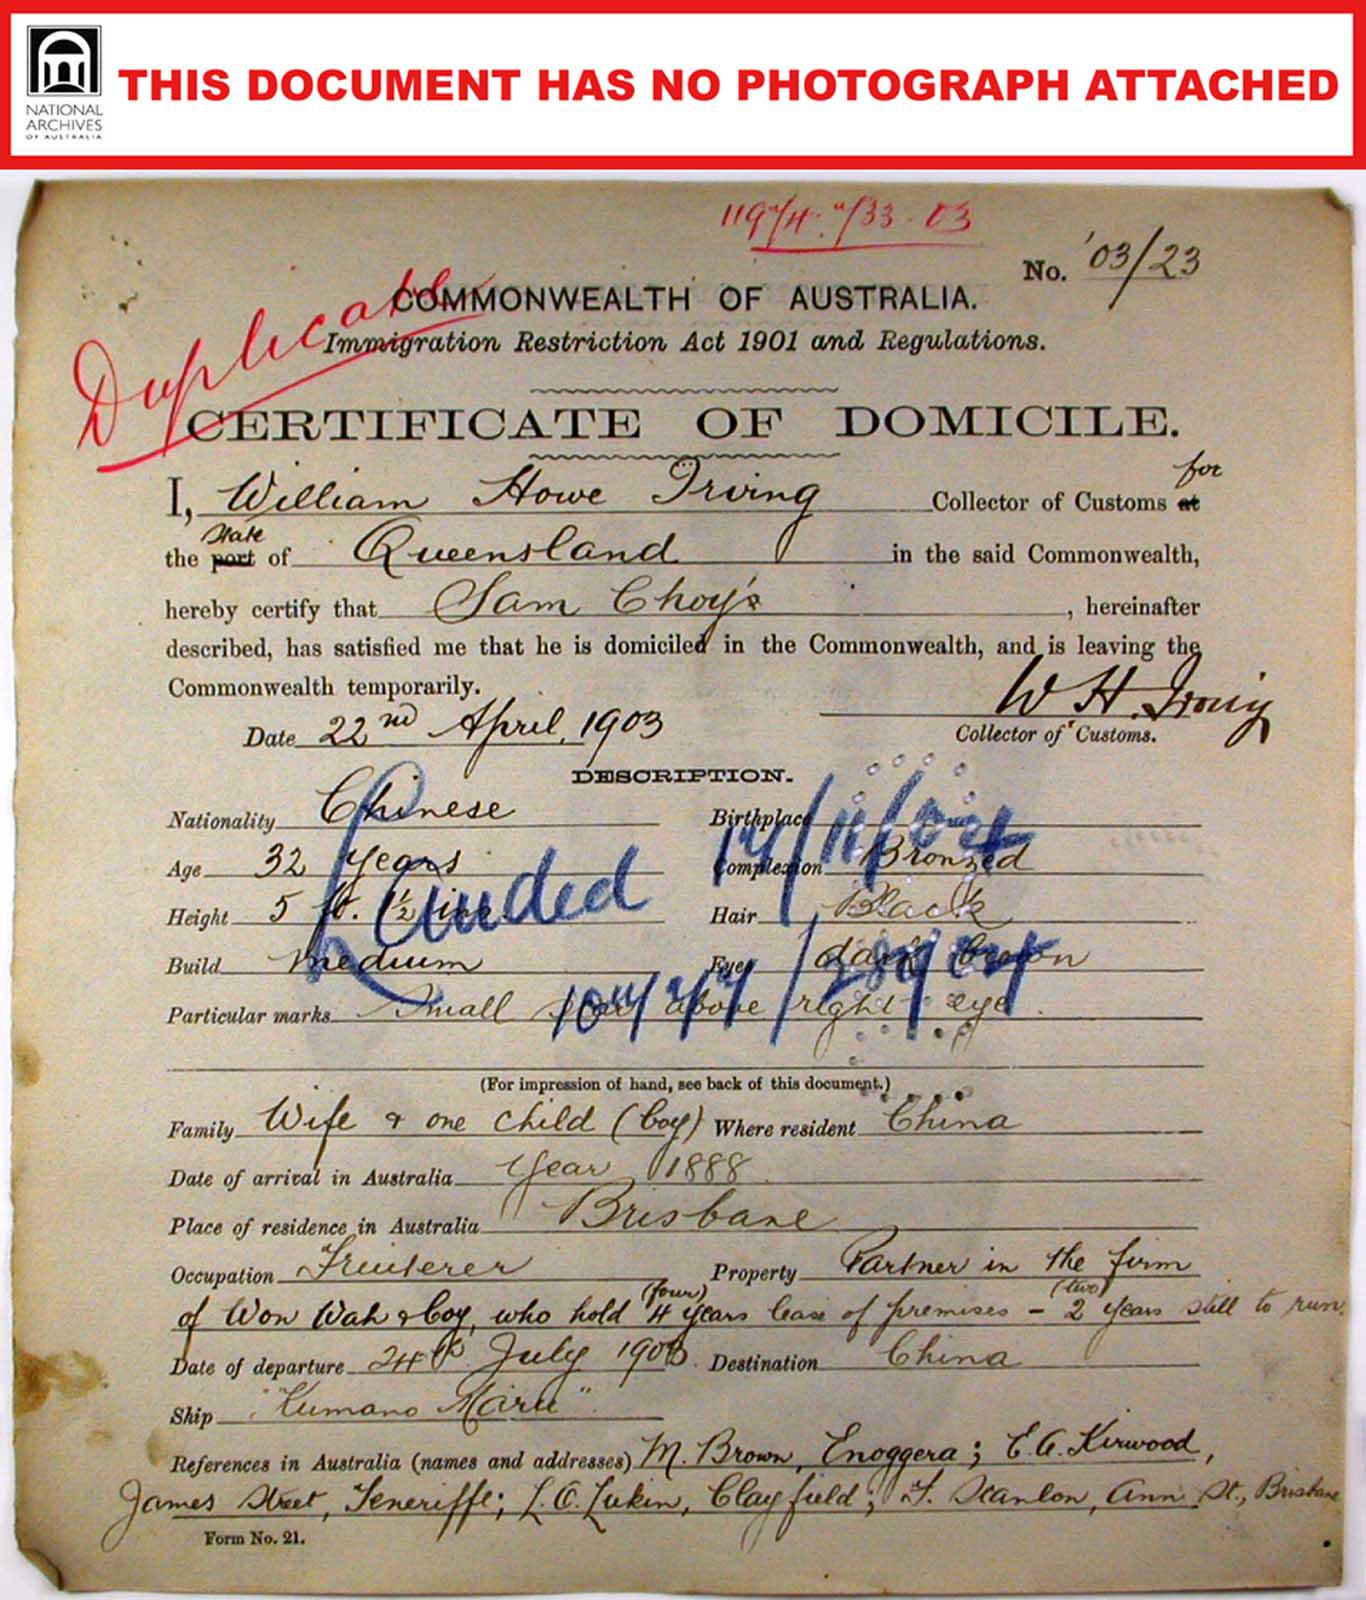 NATIONAL
ARCHIVES
OF AUSTRALIA
THIS DOCUMENT HAS NO PHOTOGRAPH ATTACHED
No. '03/23
Duplicate
COMMONWEALTH OF AUSTRALIA.
Immigration Restriction Act 1901 and Regulations.
CERTIFICATE OF DOMICILE.
for
I, William Howe Irving Collector of Customs at
State
the port of Queensland in the said Commonwealth,
hereby certify that Sam Choy, hereinafter
described, has satisfied me that he is domiciled in the Commonwealth, and is leaving the
Commonwealth temporarily.
W H. Irving
Date 22nd April, 1903
Collector of Customs.
DESCRIPTION.
Nationality Chinese Birthplace
Age 32 years Complexion Bronzed
Height 5 ft. 1½ ins. Hair Black
Landed
Build medium Eyes dark brown
Particular marks Small scar above right eye.
(For impression of hand, see back of this document.)
Family Wife & one child (boy) Where resident China
Date of arrival in Australia Year 1888
Place of residence in Australia Brisbane
Occupation Fruiterer Property Partner in the firm
(four) (two)
of Won Wah & Coy, who hold 4 years lease of premises - 2 years still to run.
Date of departure 24th July 1903. Destination China
Ship "Kumano Maru".
References in Australia (names and addresses) M. Brown, Enoggera; E.A. Kirwood,
James Street, Teneriffe; L.O. Lukin, Clayfield; T. Scanlon, Ann St., Brisbane
Form No. 21.